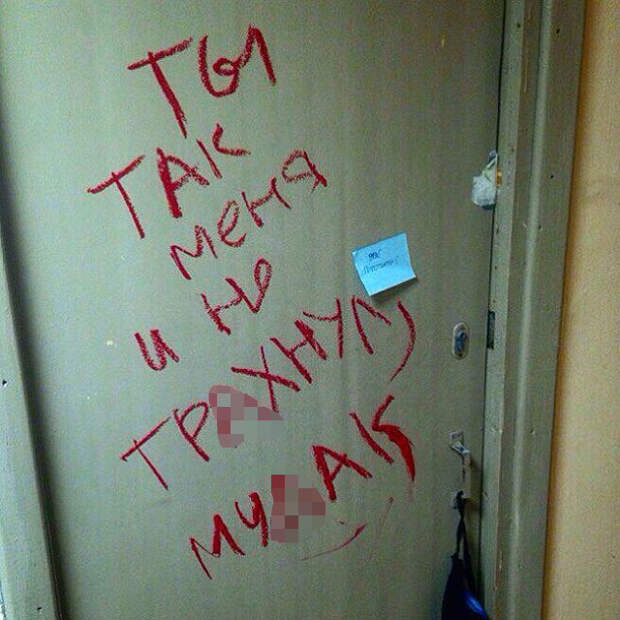 ТЫ
ТАК
МЕНЯ
И НЕ
ТР ХНУЛ
МУ АК